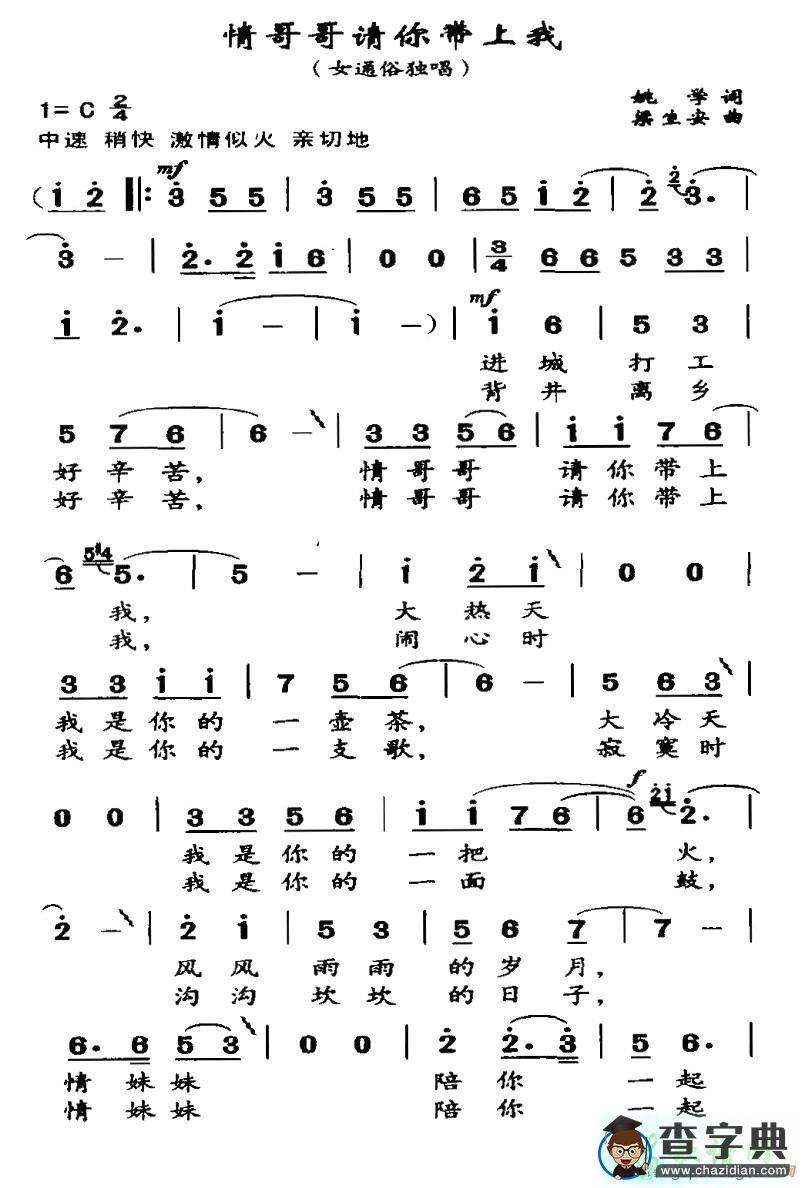 情哥哥请你带上我
（女通俗独唱）
1= C 2/4
姚 学 词
梁生安 曲
中速 稍快 激情似火 亲切地
mf
( i̇ 2̇ ‖: 3̇ 5 5 | 3̇ 5 5 | 6 5 i̇ 2̇ | 2̇ 2̇ 3̇.
3̇ — | 2̇. 2̇ i̇ 6 | 0 0 | 3/4 6 6 5 3 3 |
i̇ 2̇. | i̇ — | i̇ —) | mf i̇ 6 | 5 3 |
进 城 打 工
背 井 离 乡
5 7 6 | 6 — | 3 3 5 6 | i̇ i̇ 7 6 |
好 辛 苦， 情 哥 哥 请 你 带 上
好 辛 苦， 情 哥 哥 请 你 带 上
6 5#4 5. | 5 — | i̇ 2̇ i̇ | 0 0 |
我， 大 热 天
我， 闹 心 时
3 3 i̇ i̇ | 7 5 6 | 6 — | 5 6 3 |
我 是 你 的 一 壶 茶， 大 冷 天
我 是 你 的 一 支 歌， 寂 寞 时
0 0 | 3 3 5 6 | i̇ i̇ 7 6 | f 6 2̇i̇ 2̇. |
我 是 你 的 一 把 火，
我 是 你 的 一 面 鼓，
2̇ — | 2̇ i̇ | 5 3 | 5 6 7 | 7 — |
风 风 雨 雨 的 岁 月，
沟 沟 坎 坎 的 日 子，
6. 6 5 3 | 0 0 | 2̇ 2̇. 3̇ | 5 6. |
情 妹 妹 陪 你 一 起
情 妹 妹 陪 你 一 起
查字典
www.chazidian.com